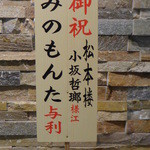 御祝
松本楼
小坂哲瑯様江
みのもんた与利